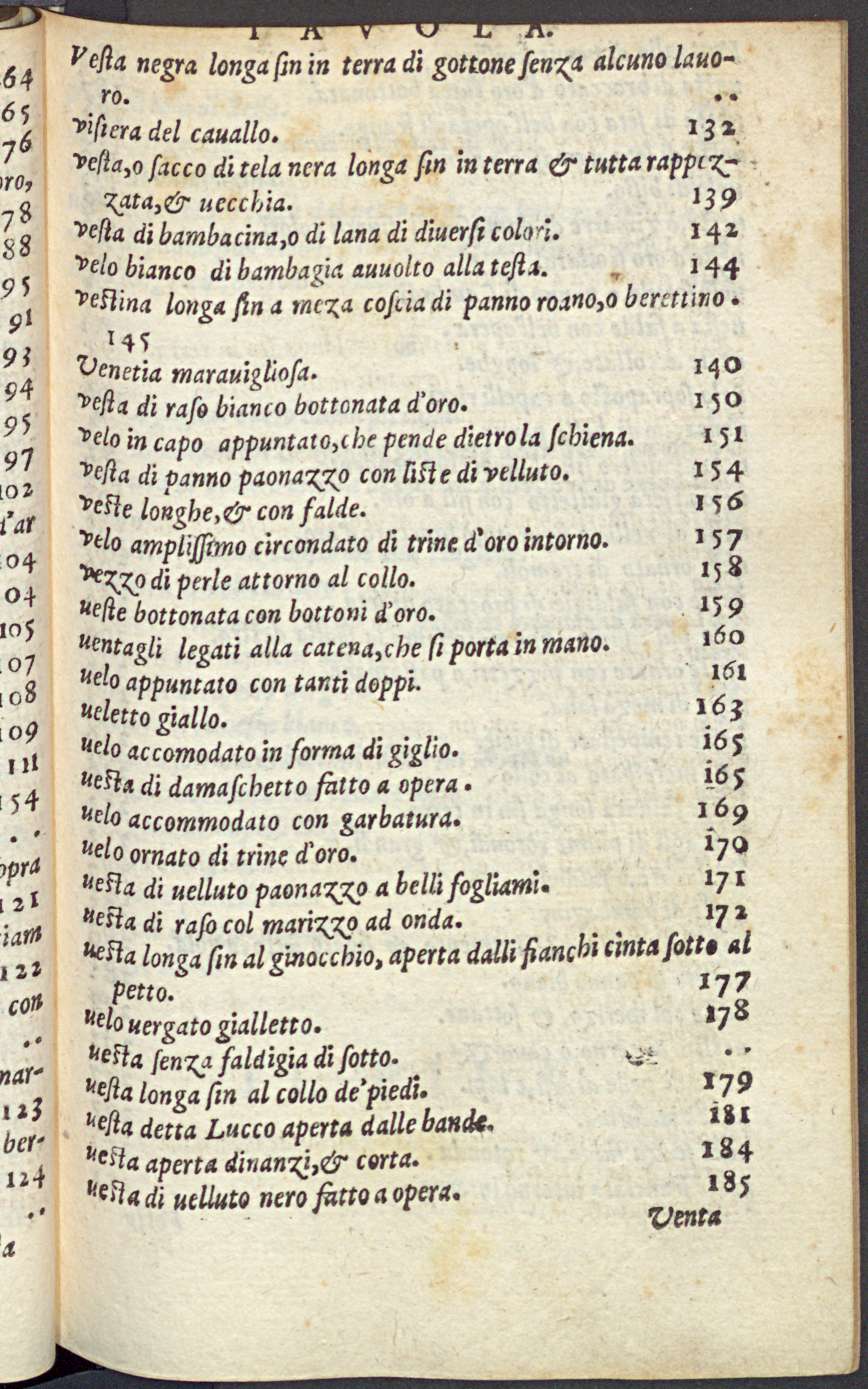 TAVOLA.
Vesta negra longa sin in terra di gottone senza alcuno lauo-
ro. ..
visiera del cauallo. 132
vesta,o sacco di tela nera longa sin in terra & tutta rappez-
zata,& uecchia. 139
vesta di bambacina,o di lana di diuersi colori. 142
velo bianco di bambagia auuolto alla testa. 144
vestina longa sin a meza coscia di panno roano,o berettino.
145
Venetia marauigliosa. 140
vesta di raso bianco bottonata d'oro. 150
velo in capo appuntato,che pende dietro la schiena. 151
vesta di panno paonazzo con liste di velluto. 154
veste longhe,& con falde. 156
velo amplissimo circondato di trine d'oro intorno. 157
vezzo di perle attorno al collo. 158
ueste bottonata con bottoni d'oro. 159
uentagli legati alla catena,che si porta in mano. 160
uelo appuntato con tanti doppi. 161
ueletto giallo. 163
uelo accomodato in forma di giglio. 165
uesta di damaschetto fatto a opera. 165
uelo accommodato con garbatura. 169
uelo ornato di trine d'oro. 170
uesta di uelluto paonazzo a belli fogliami. 171
uesta di raso col marizzo ad onda. 172
uesta longa sin al ginocchio, aperta dalli fianchi cinta sotto al
petto. 177
uelo uergato gialletto. 178
uesta senza faldigia di sotto. ..
uesta longa sin al collo de'piedi. 179
uesta detta Lucco aperta dalle bande. 181
uesta aperta dinanzi,& corta. 184
uesta di uelluto nero fatto a opera. 185
Venta